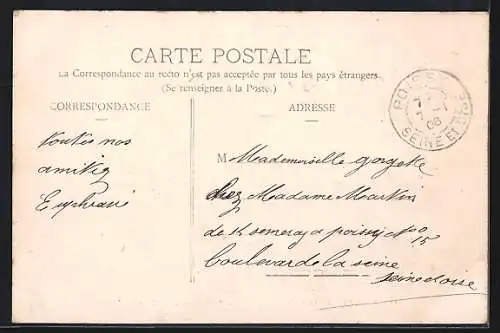 CARTE POSTALE
La Correspondance au recto n'est pas acceptée par tous les pays étrangers.
(Se renseigner à la Poste.)
CORRESPONDANCE
ADRESSE
POISSY
7
08
SEINE ET OISE
toutes nos
amitiés
M Mademoiselle
chez Madame Martin
de a poissy No 15
boulevar de la seine
seine et oise